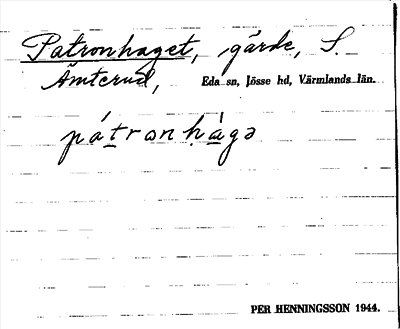 Patronhaget, gärde, S.
Ämterud, Eda sn, Jösse hd, Värmlands län.
pátronhá̱gə
PER HENNINGSSON 1944.